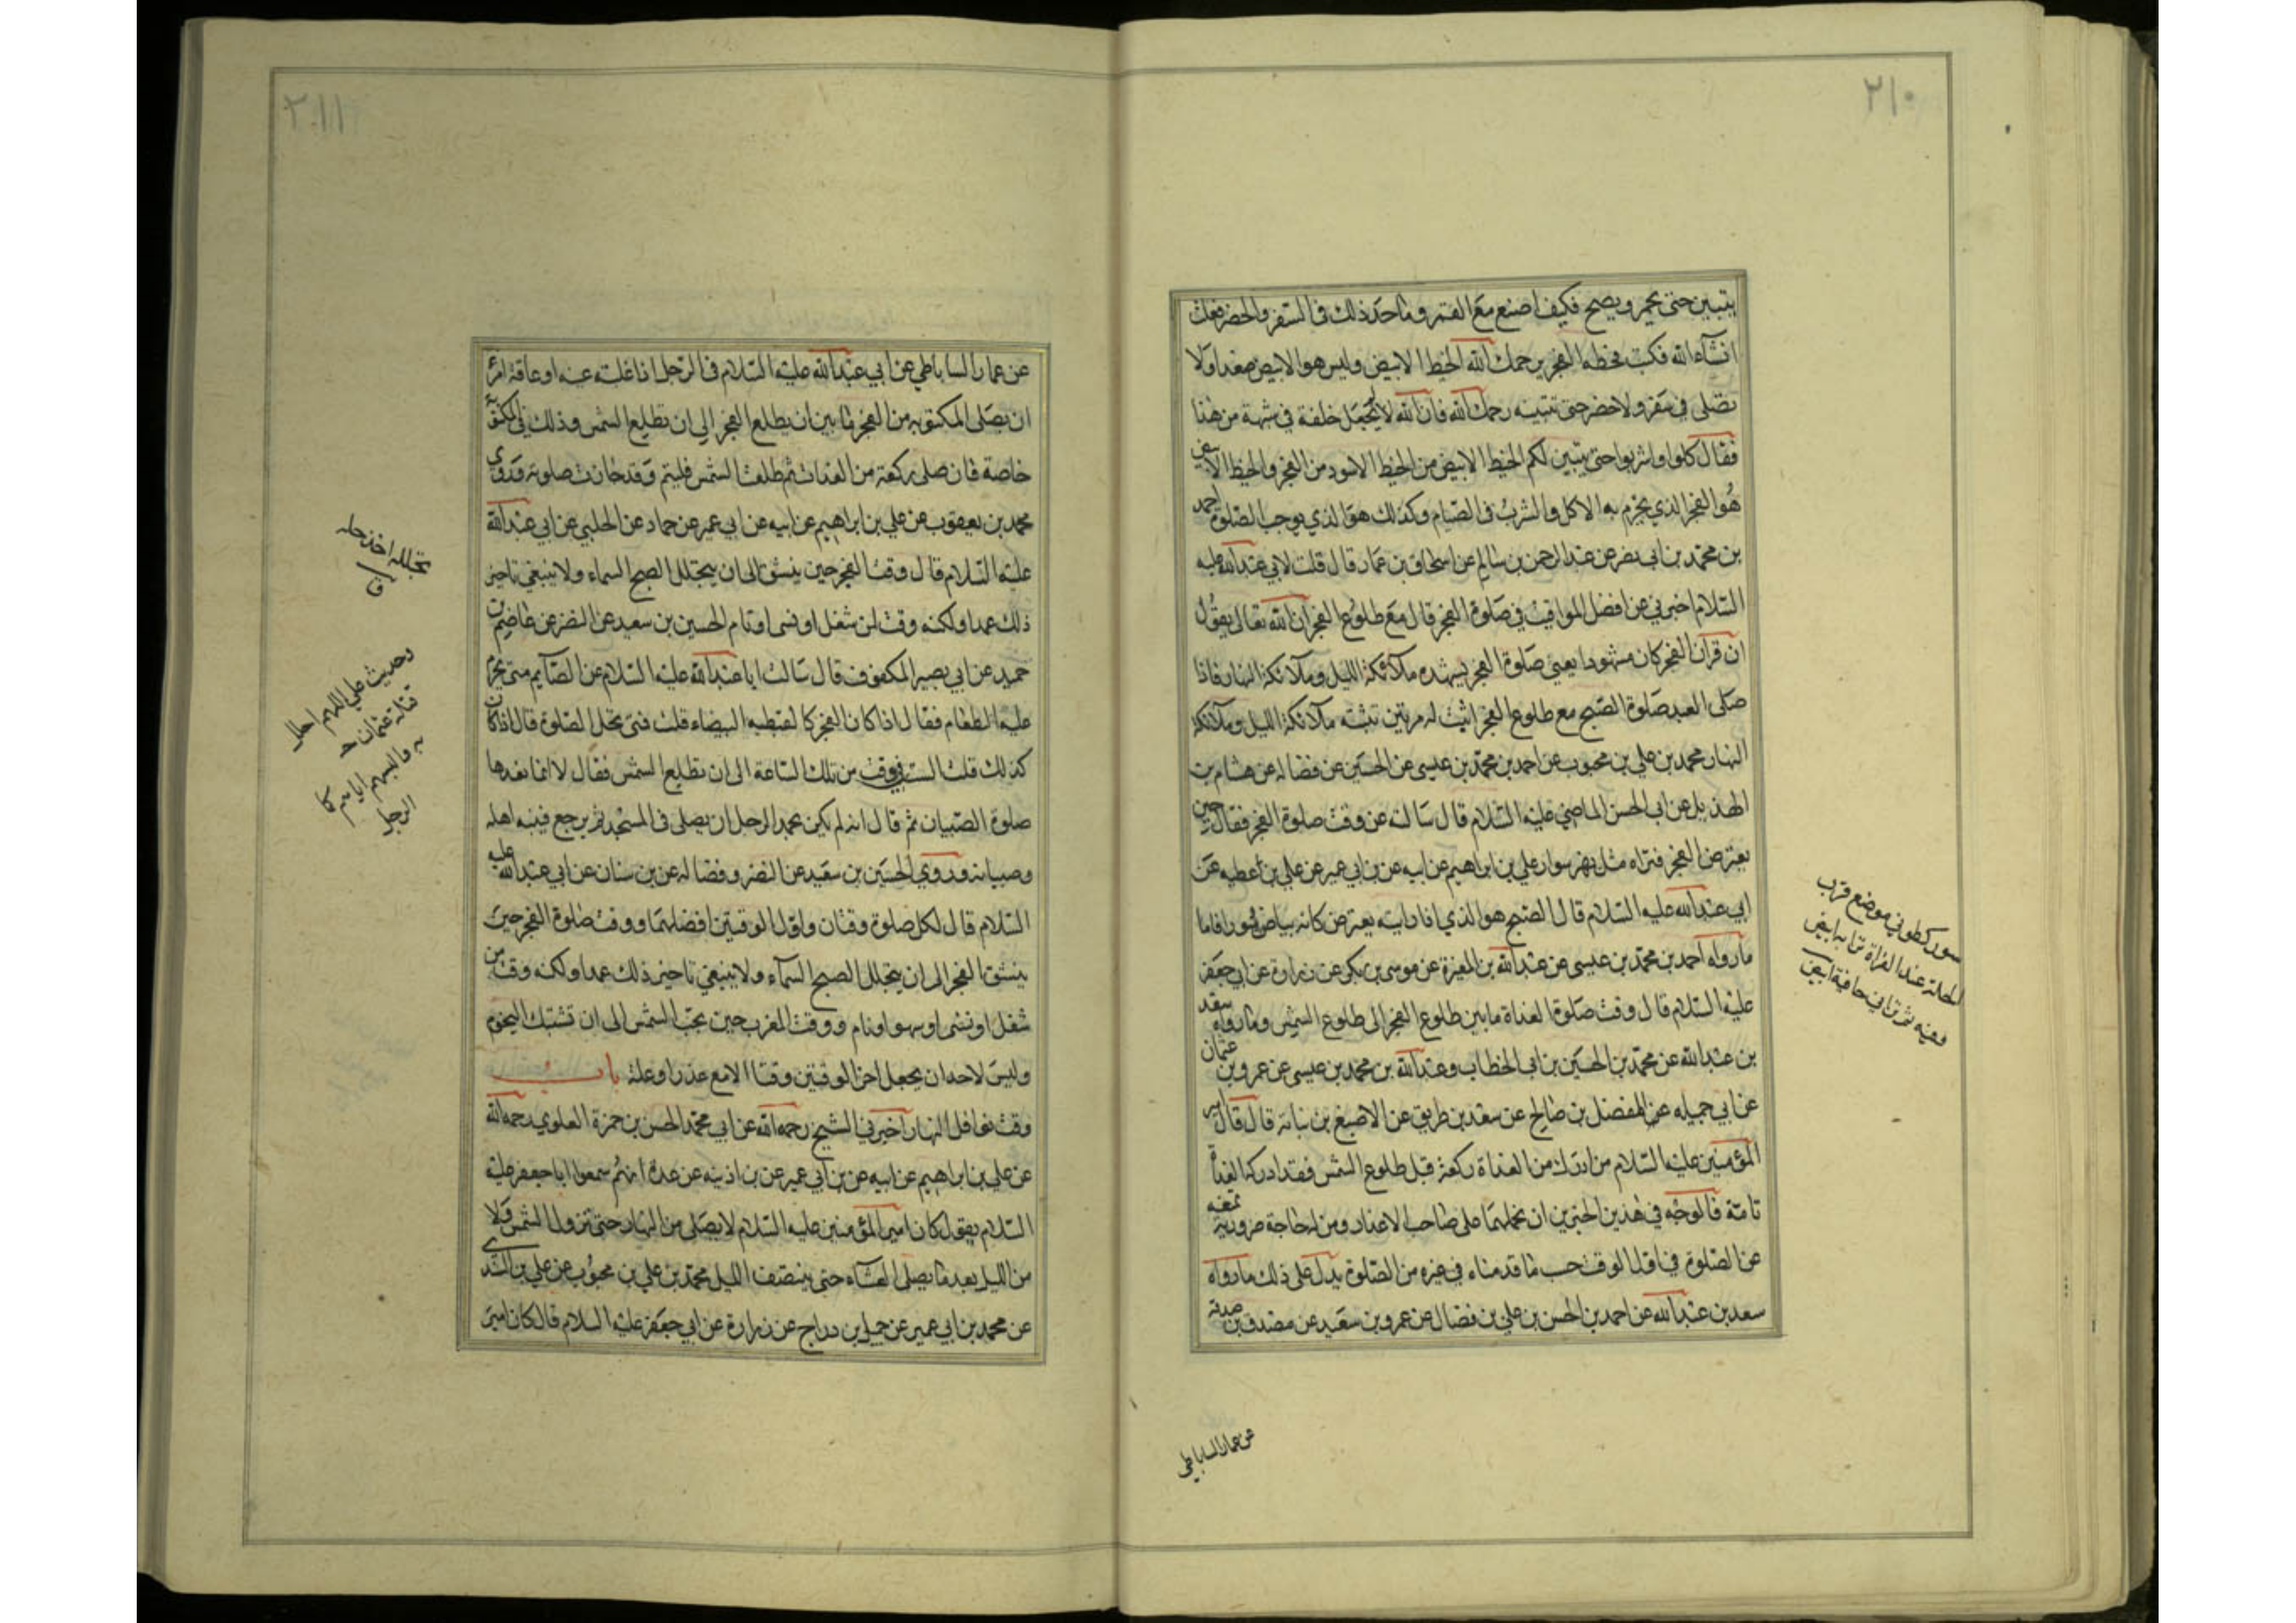 ٢١٠
يتبين حتى يحمر ويصبح فكيف اصنع مع القمر وما حد ذلك في السفر والحضر فعلت
انشاء الله فكتب بخطه الفجر يرحمك الله الخيط الابيض وليس هو الابيض صعدا ولا
تصلى في سفر ولا حضر حتى تتبينه رحمك الله فان الله لا يجعل خلقه في شبهة من هذا
فقال كلوا واشربوا حتى يتبين لكم الخيط الابيض من الخيط الاسود من الفجر والخيط الابيض
هو الفجر الذي يحرم به الاكل والشرب في الصيام وكذلك هو الذي يوجب الصلوة احمد
بن محمد بن ابى نصر عن عبد الرحمن بن سالم عن اسحاق بن عمار قال قلت لابي عبد الله عليه
السلام اخبرني عن افضل المواقيت في صلوة الفجر قال مع طلوع الفجر ان الله تعالى يقول
ان قرآن الفجر كان مشهودا يعني صلوة الفجر يشهده ملائكة الليل وملائكة النهار فاذا
صلى العبد صلوة الصبح مع طلوع الفجر اثبت له مرتين تثبته ملائكة الليل وملائكة
النهار محمد بن علي بن محبوب عن احمد بن محمد بن عيسى عن الحسين عن فضاله عن هشام بن
الهذيل عن ابى الحسن الماضي عليه السلام قال سالته عن وقت صلوة الفجر فقال حين
يعترض الفجر فتراه مثل نهر سورا علي بن ابراهيم عن ابيه عن بن ابي عمير عن علي بن اعطيه عن
ابي عبد الله عليه السلام قال الصبح هو الذي اذا رايته يعترض كانه بياض سورا فاما
ما رواه احمد بن محمد بن عيسى عن عبد الله بن المغيرة عن موسى بن بكر عن زرارة عن ابي جعفر
عليه السلام قال وقت صلوة الغداة ما بين طلوع الفجر الى طلوع الشمس وما رواه سعد
بن عبد الله عن محمد بن الحسين بن ابى الخطاب وعبد الله بن محمد بن عيسى عن عمرو بن عثمان
عن ابي جميله عن المفضل بن صالح عن سعد بن طريف عن الاصبغ بن نباته قال قال امير
المؤمنين عليه السلام من ادرك من الغداة ركعة قبل طلوع الشمس فقد ادرك الغداة
تامة فالوجه في هذين الخبرين ان نحملهما على صاحب الاعذار ومن له حاجة ضرورية تمنعه
عن الصلوة في اول الوقت حسب ما قدمناه في غيره من الصلوة يدل على ذلك ما رواه
سعد بن عبد الله عن احمد بن الحسن بن علي بن فضال عن عمرو بن سعيد عن مصدق بن صدقة
سورى كطوبى موضع قرب
الحلة عند الفراة ترابه ابيض
عن عمار الساباطي
٢١١
عن عمار الساباطي عن ابي عبد الله عليه السلام في الرجل اذا غلبته عينه او عاقه امر
ان يصلى المكتوبة من الفجر ما بين ان يطلع الفجر الى ان تطلع الشمس وذلك في المكتوبة
خاصة فان صلى ركعة من الغداة ثم طلعت الشمس فليتم وقد جازت صلوته وروى
محمد بن يعقوب عن علي بن ابراهيم عن ابيه عن ابي عمير عن حماد عن الحلبي عن ابي عبد الله
عليه السلام قال وقت الفجر حين ينشق الى ان يتجلل الصبح السماء ولا ينبغي تاخير
ذلك عمدا ولكنه وقت لمن شغل او نسى او نام الحسين بن سعيد عن النضر عن عاصم بن
حميد عن ابي بصير المكفوف قال سالت ابا عبد الله عليه السلام عن الصايم متى يحرم
عليه الطعام فقال اذا كان الفجر كالقبطيه البيضاء قلت فمتى تحل الصلوة قال اذا كان
كذلك قلت الست في وقت من تلك الساعة الى ان تطلع الشمس فقال لا انما نعدها
صلوة الصبيان ثم قال انه لم يكن يحمد الرجل ان يصلى في المسجد ثم يرجع فينبه اهله
وصبيانه وروي الحسين بن سعيد عن النضر وفضاله عن بن سنان عن ابي عبد الله عليه
السلام قال لكل صلوة وقتان واول الوقتين افضلهما ووقت صلوة الفجر حين
ينشق الفجر الى ان يتجلل الصبح السماء ولا ينبغي تاخير ذلك عمدا ولكنه وقت من
شغل او نسى او سهو او نام ووقت المغرب حين تجب الشمس الى ان تشتبك النجوم
وليس لاحد ان يجعل اخر الوقتين وقتا الا مع عذر او علة باب
وقت نوافل النهار اخبرني الشيخ رحمه الله عن ابي محمد الحسن بن حمزة العلوي رحمه الله
عن علي بن ابراهيم عن ابيه عن بن ابي عمير عن بن اذينه عن عدة انهم سمعوا ابا جعفر عليه
السلام يقول كان امير المؤمنين عليه السلام لا يصلى من النهار حتى تزول الشمس ولا
من الليل بعد ما يصلى العشاء حتى ينتصف الليل محمد بن علي بن محبوب عن علي بن السندى
عن محمد بن ابي عمير عن جميل بن دراج عن زرارة عن ابي جعفر عليه السلام قال كان امير
تجلله اخذ جله
ق
وحديث علي اللهم
قتلة عثمان